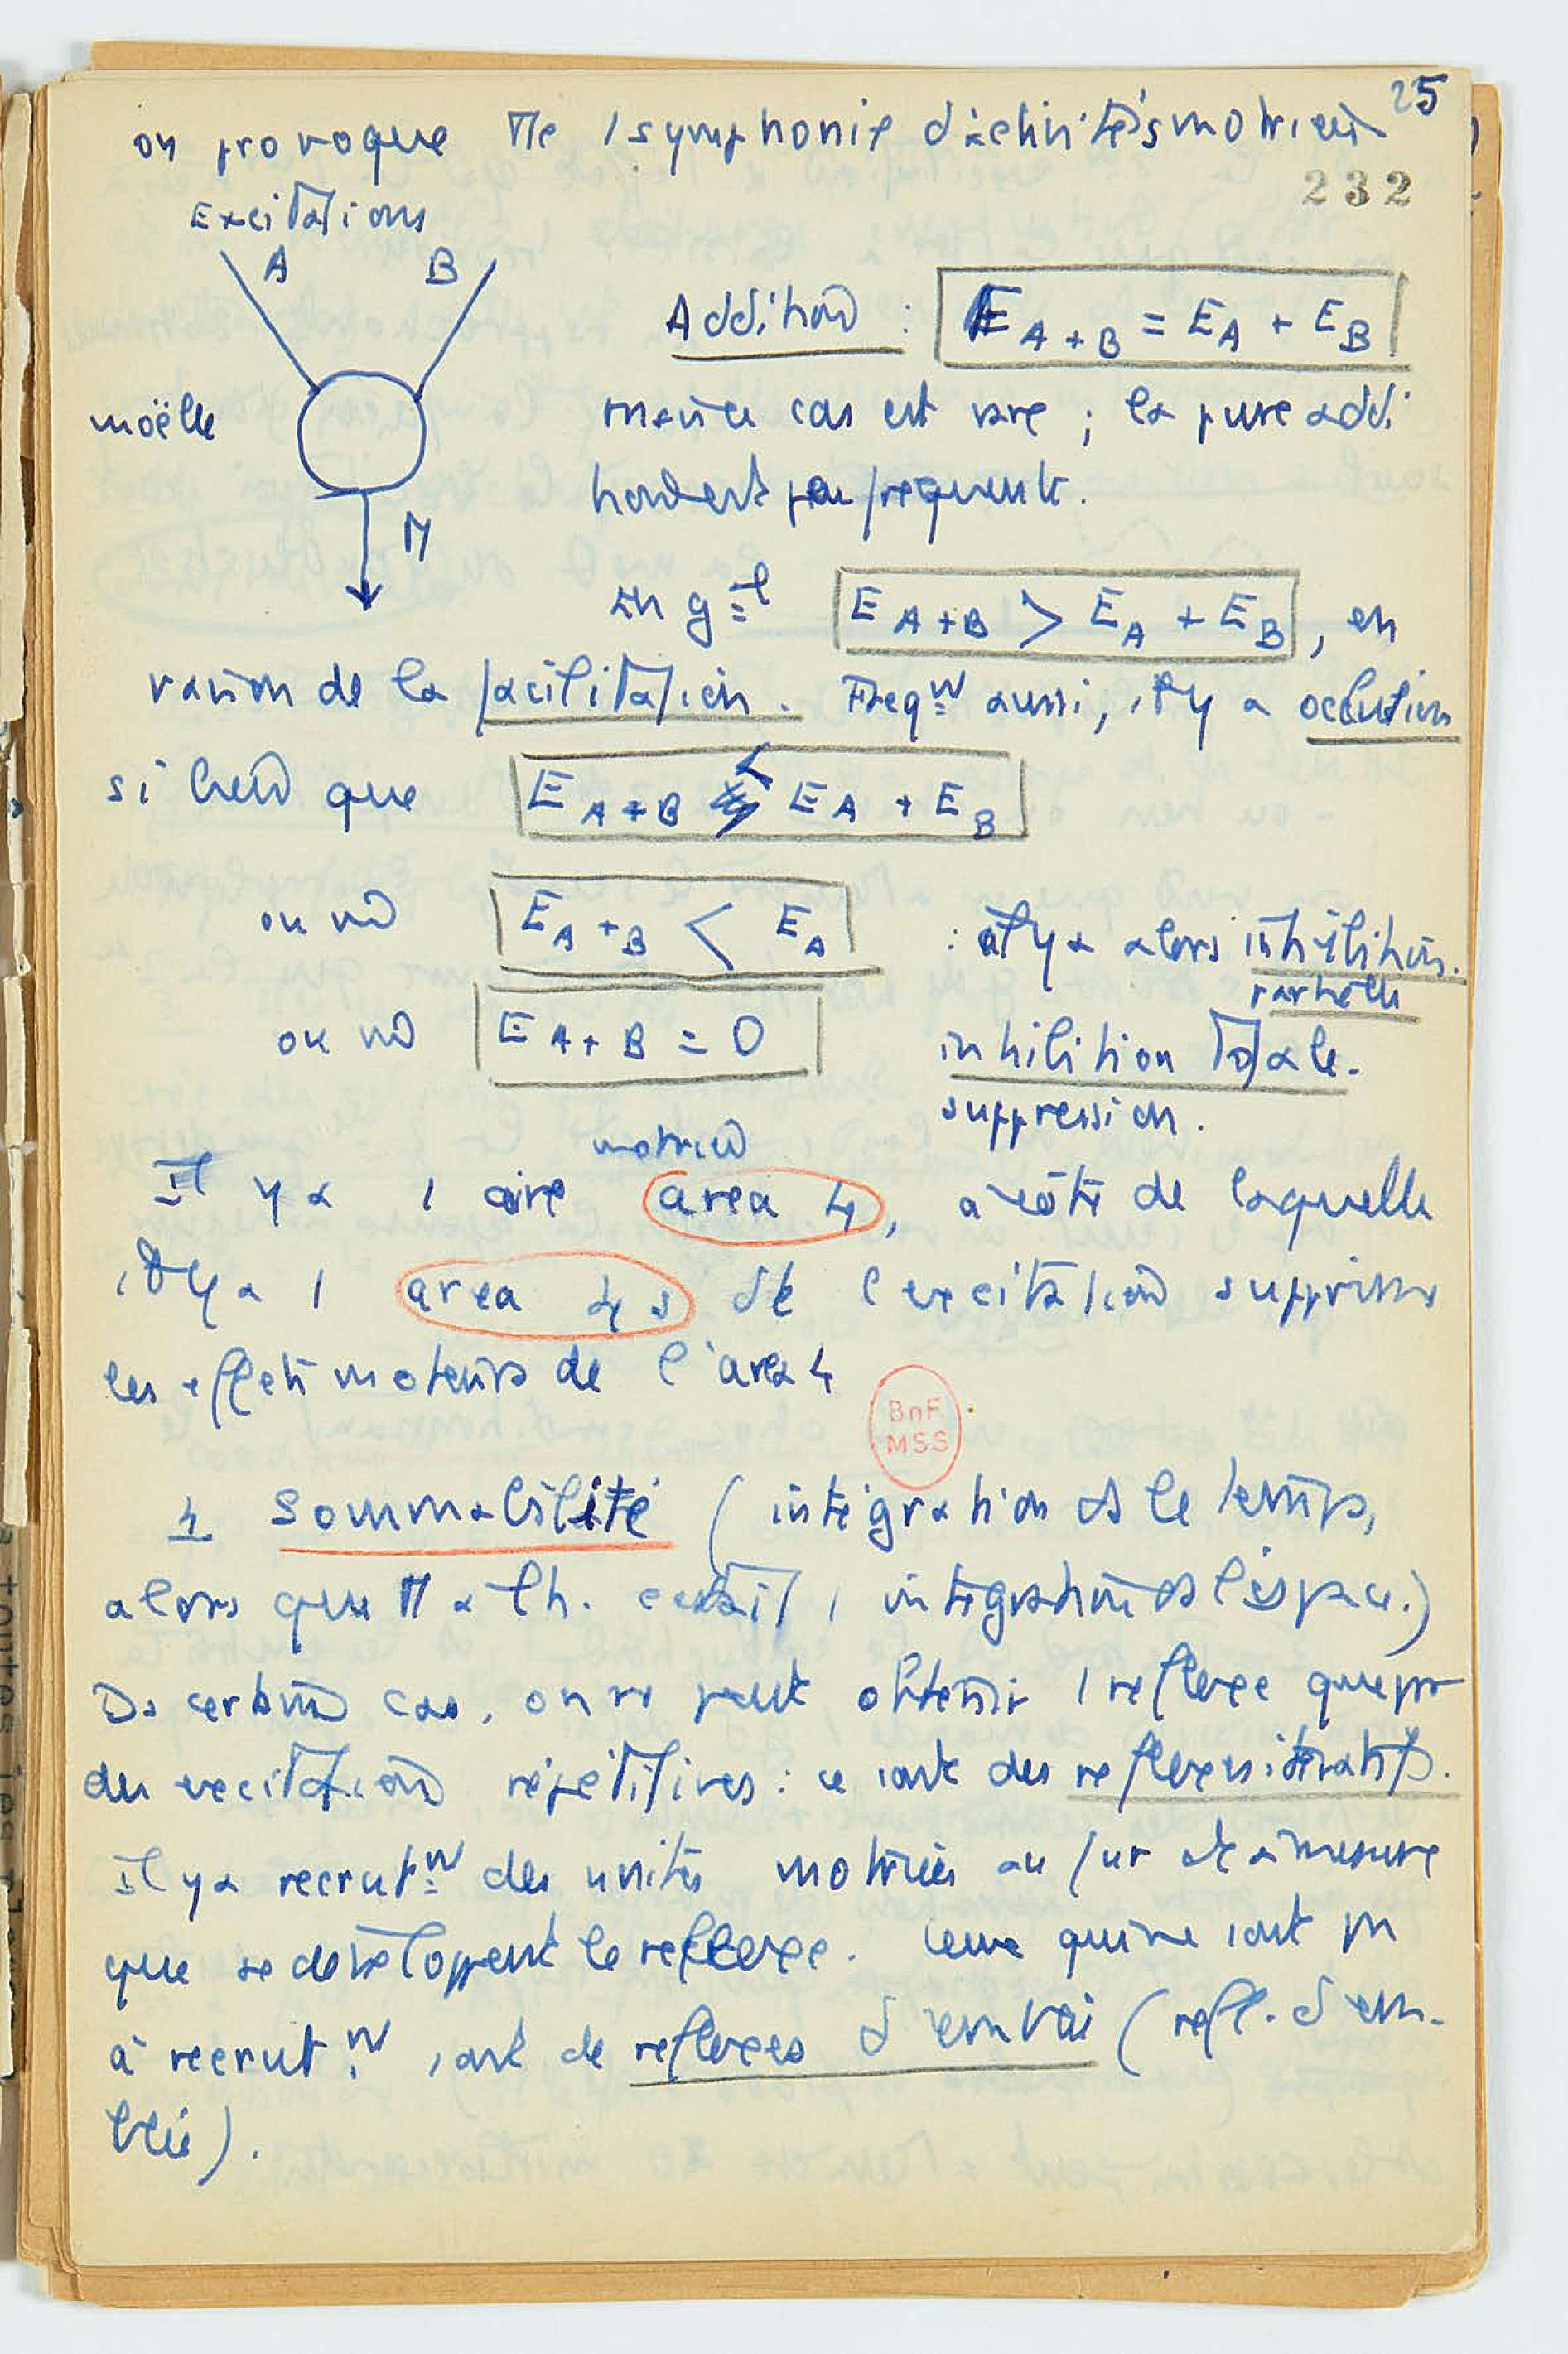 25
on provoque tte 1 symphonie d'activités motrices
232
Excitations
A B
Addition : E A+B = EA + EB
moëlle
mais ce cas est rare ; la pure addi
tion est peu fréquente.
M
En gal E A+B > EA + EB, en
raison de la facilitation. Freqt aussi, il y a occlusion
si bien que E A+B < EA + EB
ou bien E A+B < EA : il y a alors inhibition
partielle
ou bien E A+B = 0 inhibition totale.
suppression.
motrice
Il y a 1 aire area 4, à côté de laquelle
il y a 1 area 4 s dt l'excitation supprime
les effets moteurs de l'area 4
BnF
MSS
4 Sommabilité (intégration ds le temps,
alors que était 1 intégration ds l'espace.)
Ds certains cas, on ne peut obtenir 1 reflexe que par
des excitations répétitives : ce sont des reflexes itératifs.
Il y a recrutt des unités motrices au fur et à mesure
que se développent le reflexe. Ceux qui ne sont pas
à recrutt, sont de reflexes d'emblai (refl. d'em-
blée).